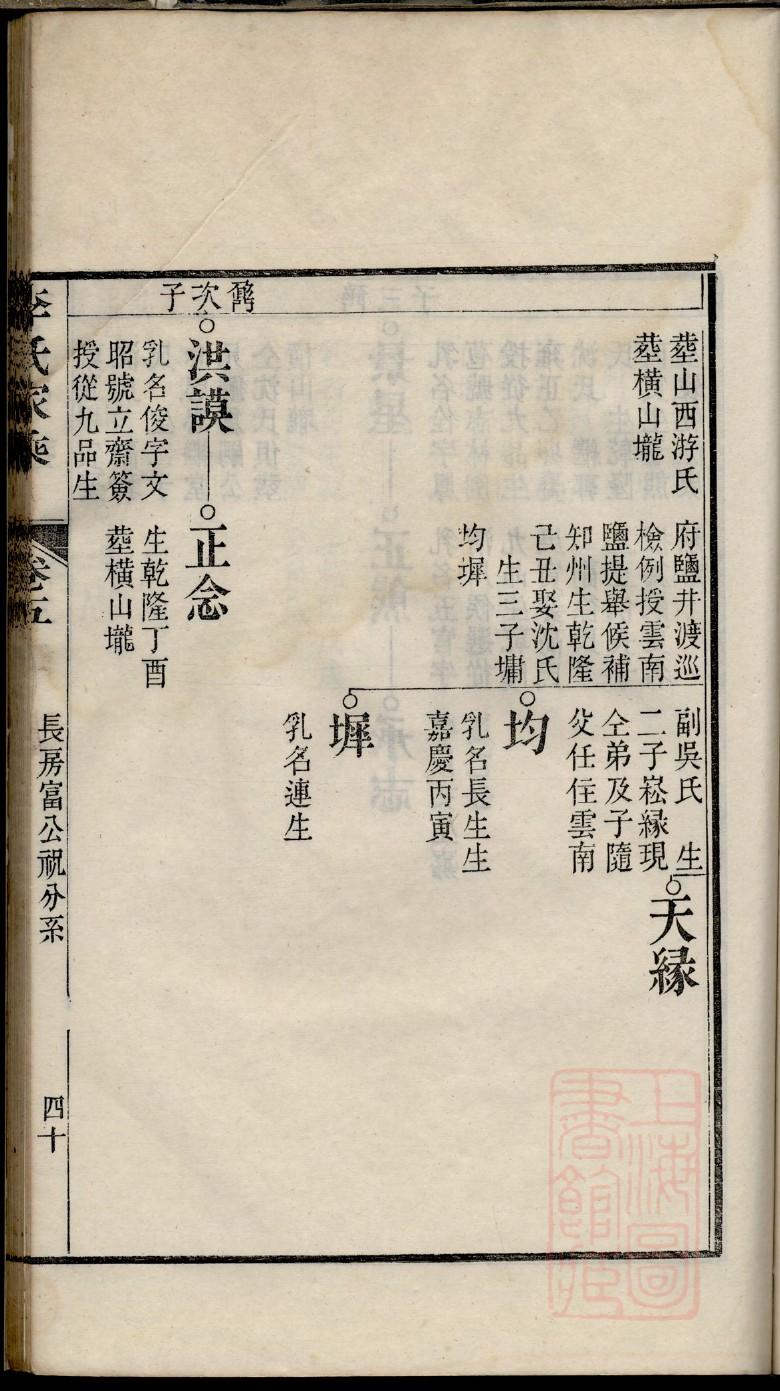 塟山西游氏
塟橫山壠
府鹽井渡巡
檢例授雲南
鹽提舉候補
知州生乾隆
己丑娶沈氏
生三子墉
均墀
副吳氏 生
二子崧緣現
仝弟及子隨
父任住雲南
天緣
均
乳名長生生
嘉慶丙寅
墀
乳名連生
次子
洪謨
乳名俊字文
昭號立齋簽
授從九品生
正念
生乾隆丁酉
塟橫山壠
李氏家乘
卷五
長房富公祝分系
四十
上海圖
書館藏